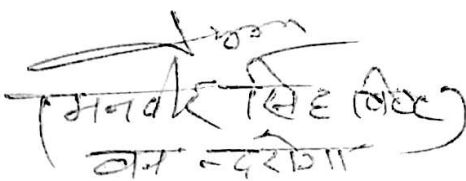 (मनवीर सिंह बिष्ट)
वन दरोगा